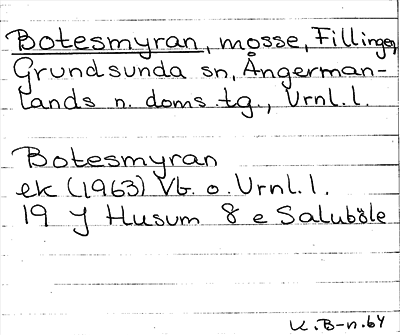 Botesmyran, mosse, Fillingen,
Grundsunda sn, Ångerman-
lands n. doms.tg., Vrnl.l.
Botesmyran
ek (1963) Vb. o. Vrnl.l.
19 J Husum 8 e Saluböle
K.B-n.64